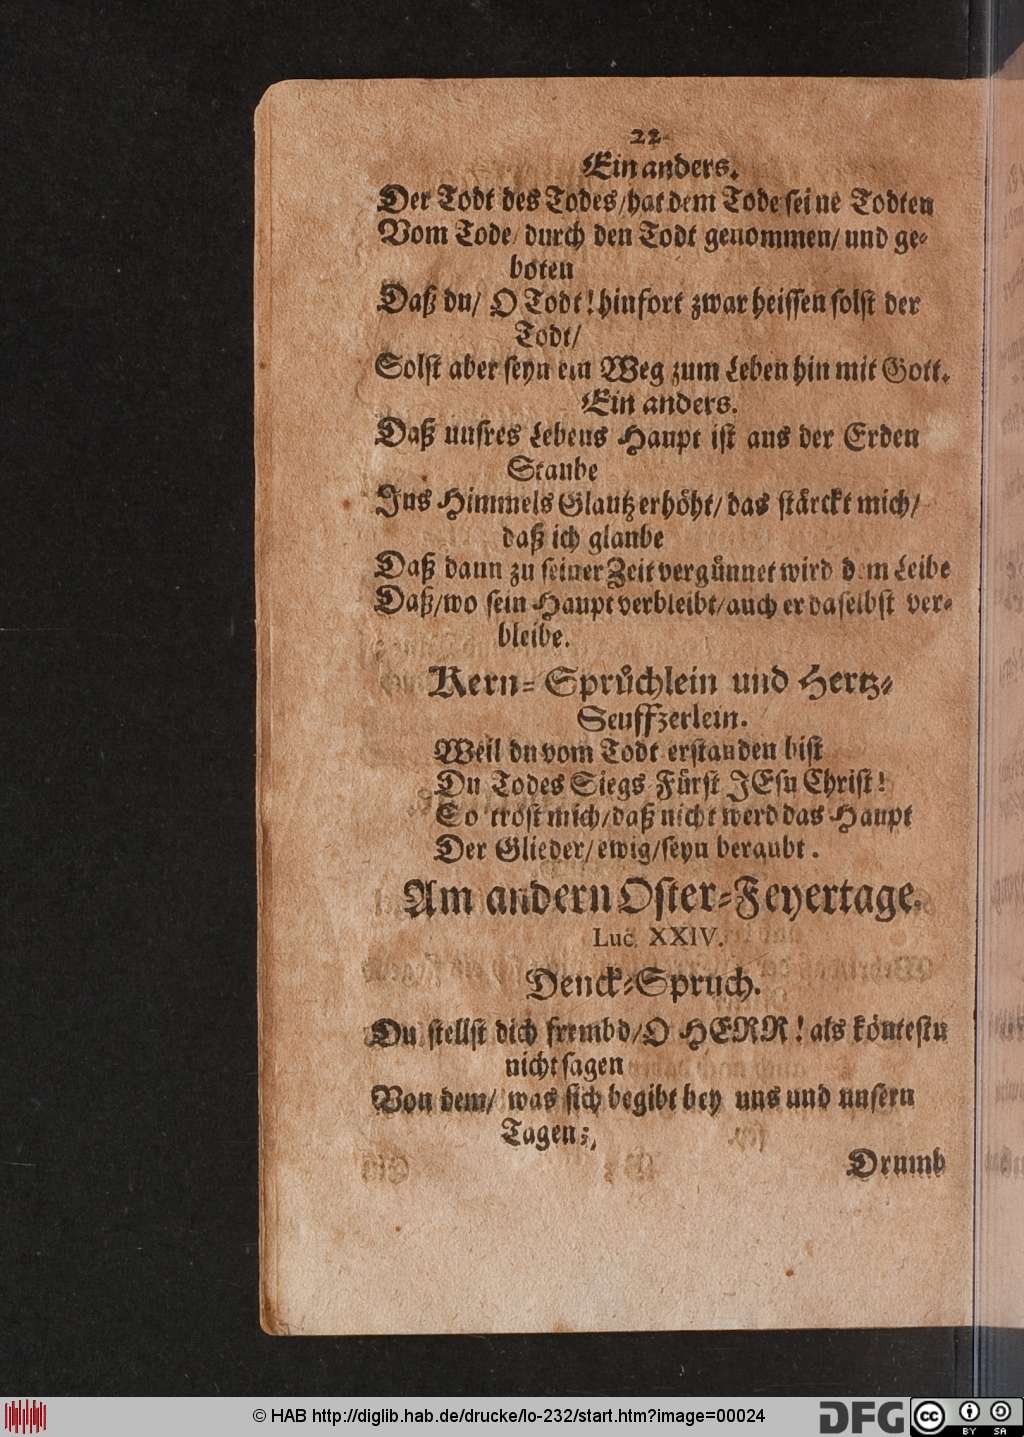 22
Ein anders.
Der Todt des Todes/hat dem Tode seine Todten
Vom Tode/durch den Todt genommen/und ge-
boten
Daß du/ O Todt! hinfort zwar heissen solst der
Todt/
Solst aber seyn ein Weg zum Leben hin mit Gott.
Ein anders.
Daß unsres Lebens Haupt ist aus der Erden
Staube
Ins Himmels Glantz erhöht/das stärckt mich/
daß ich glaube
Daß dann zu seiner Zeit vergünnet wird dem Leibe
Daß/wo sein Haupt verbleibt/auch er daselbst ver-
bleibe.
Kern-Sprüchlein und Hertz-
Seuffzerlein.
Weil du vom Todt erstanden bist
Du Todes Siegs-Fürst JEsu Christ!
So tröst mich/daß nicht werd das Haupt
Der Glieder/ewig/seyn beraubt.
Am andern Oster-Feyertage.
Luc. XXIV.
Denck-Spruch.
Du stellst dich frembd/O HERR! als köntestu
nicht sagen
Von dem/ was sich begibt bey uns und unsern
Tagen;
Drumb
© HAB http://diglib.hab.de/drucke/lo-232/start.htm?image=00024
DFG
cc
BY SA